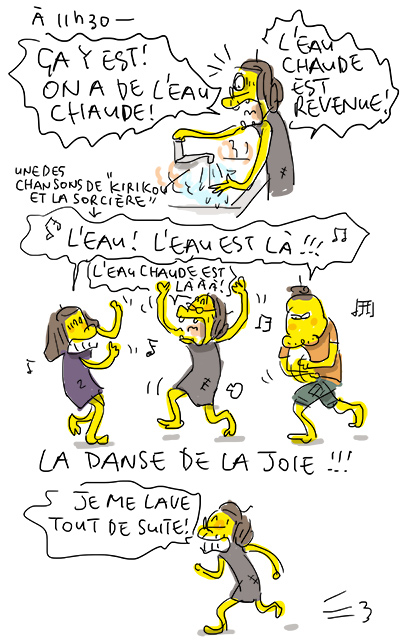 À 11H30 —
ÇA Y EST!
ON A DE L'EAU
CHAUDE!
L'EAU
CHAUDE
EST
REVENUE!
UNE DES
CHANSONS DE "KIRIKOU
ET LA SORCIÈRE"
L'EAU! L'EAU EST LÀ!!!
L'EAU CHAUDE EST
LÀÀÀ!
LA DANSE DE LA JOIE!!!
JE ME LAVE
TOUT DE SUITE!